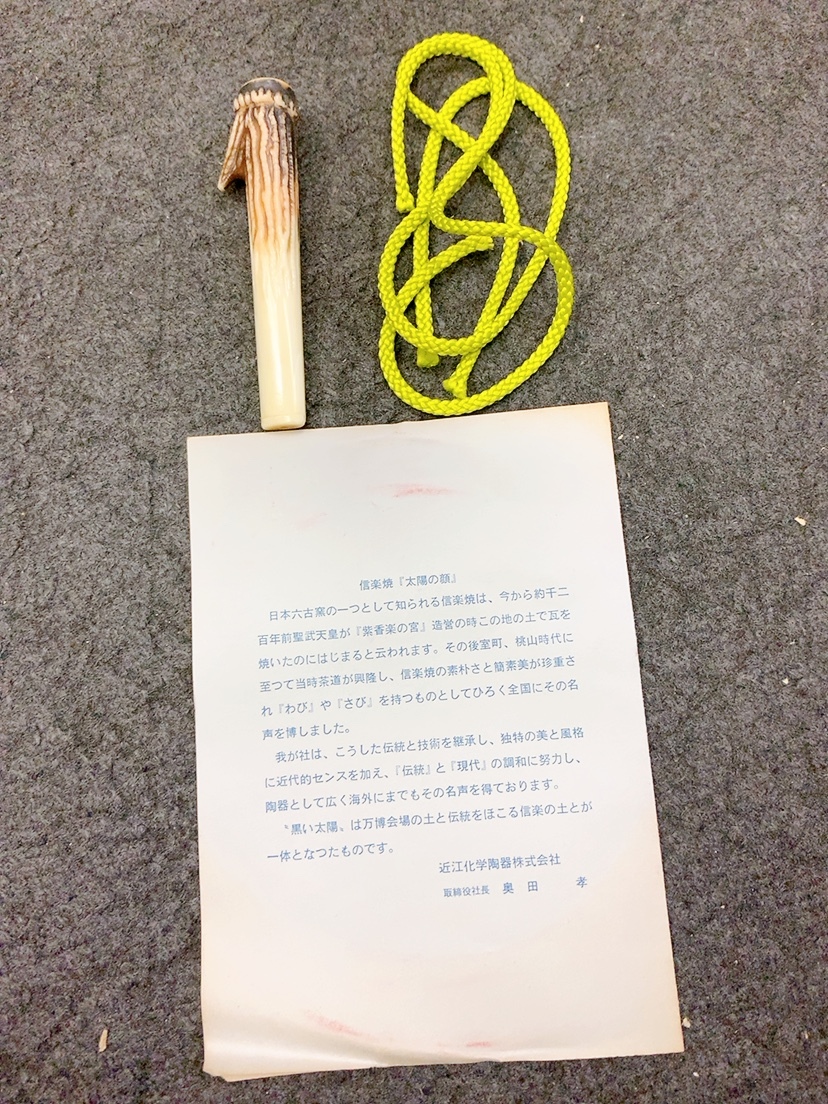 信楽焼『太陽の顔』
日本六古窯の一つとして知られる信楽焼は、今から約千二
百年前聖武天皇が『紫香楽の宮』造営の時この地の土で瓦を
焼いたのにはじまると云われます。その後室町、桃山時代に
至つて当時茶道が興隆し、信楽焼の素朴さと簡素美が珍重さ
れ『わび』や『さび』を持つものとしてひろく全国にその名
声を博しました。
我が社は、こうした伝統と技術を継承し、独特の美と風格
に近代的センスを加え、『伝統』と『現代』の調和に努力し、
陶器として広く海外にまでもその名声を得ております。
〝黒い太陽〟は万博会場の土と伝統をほこる信楽の土とが
一体となつたものです。
近江化学陶器株式会社
取締役社長 奥田 孝